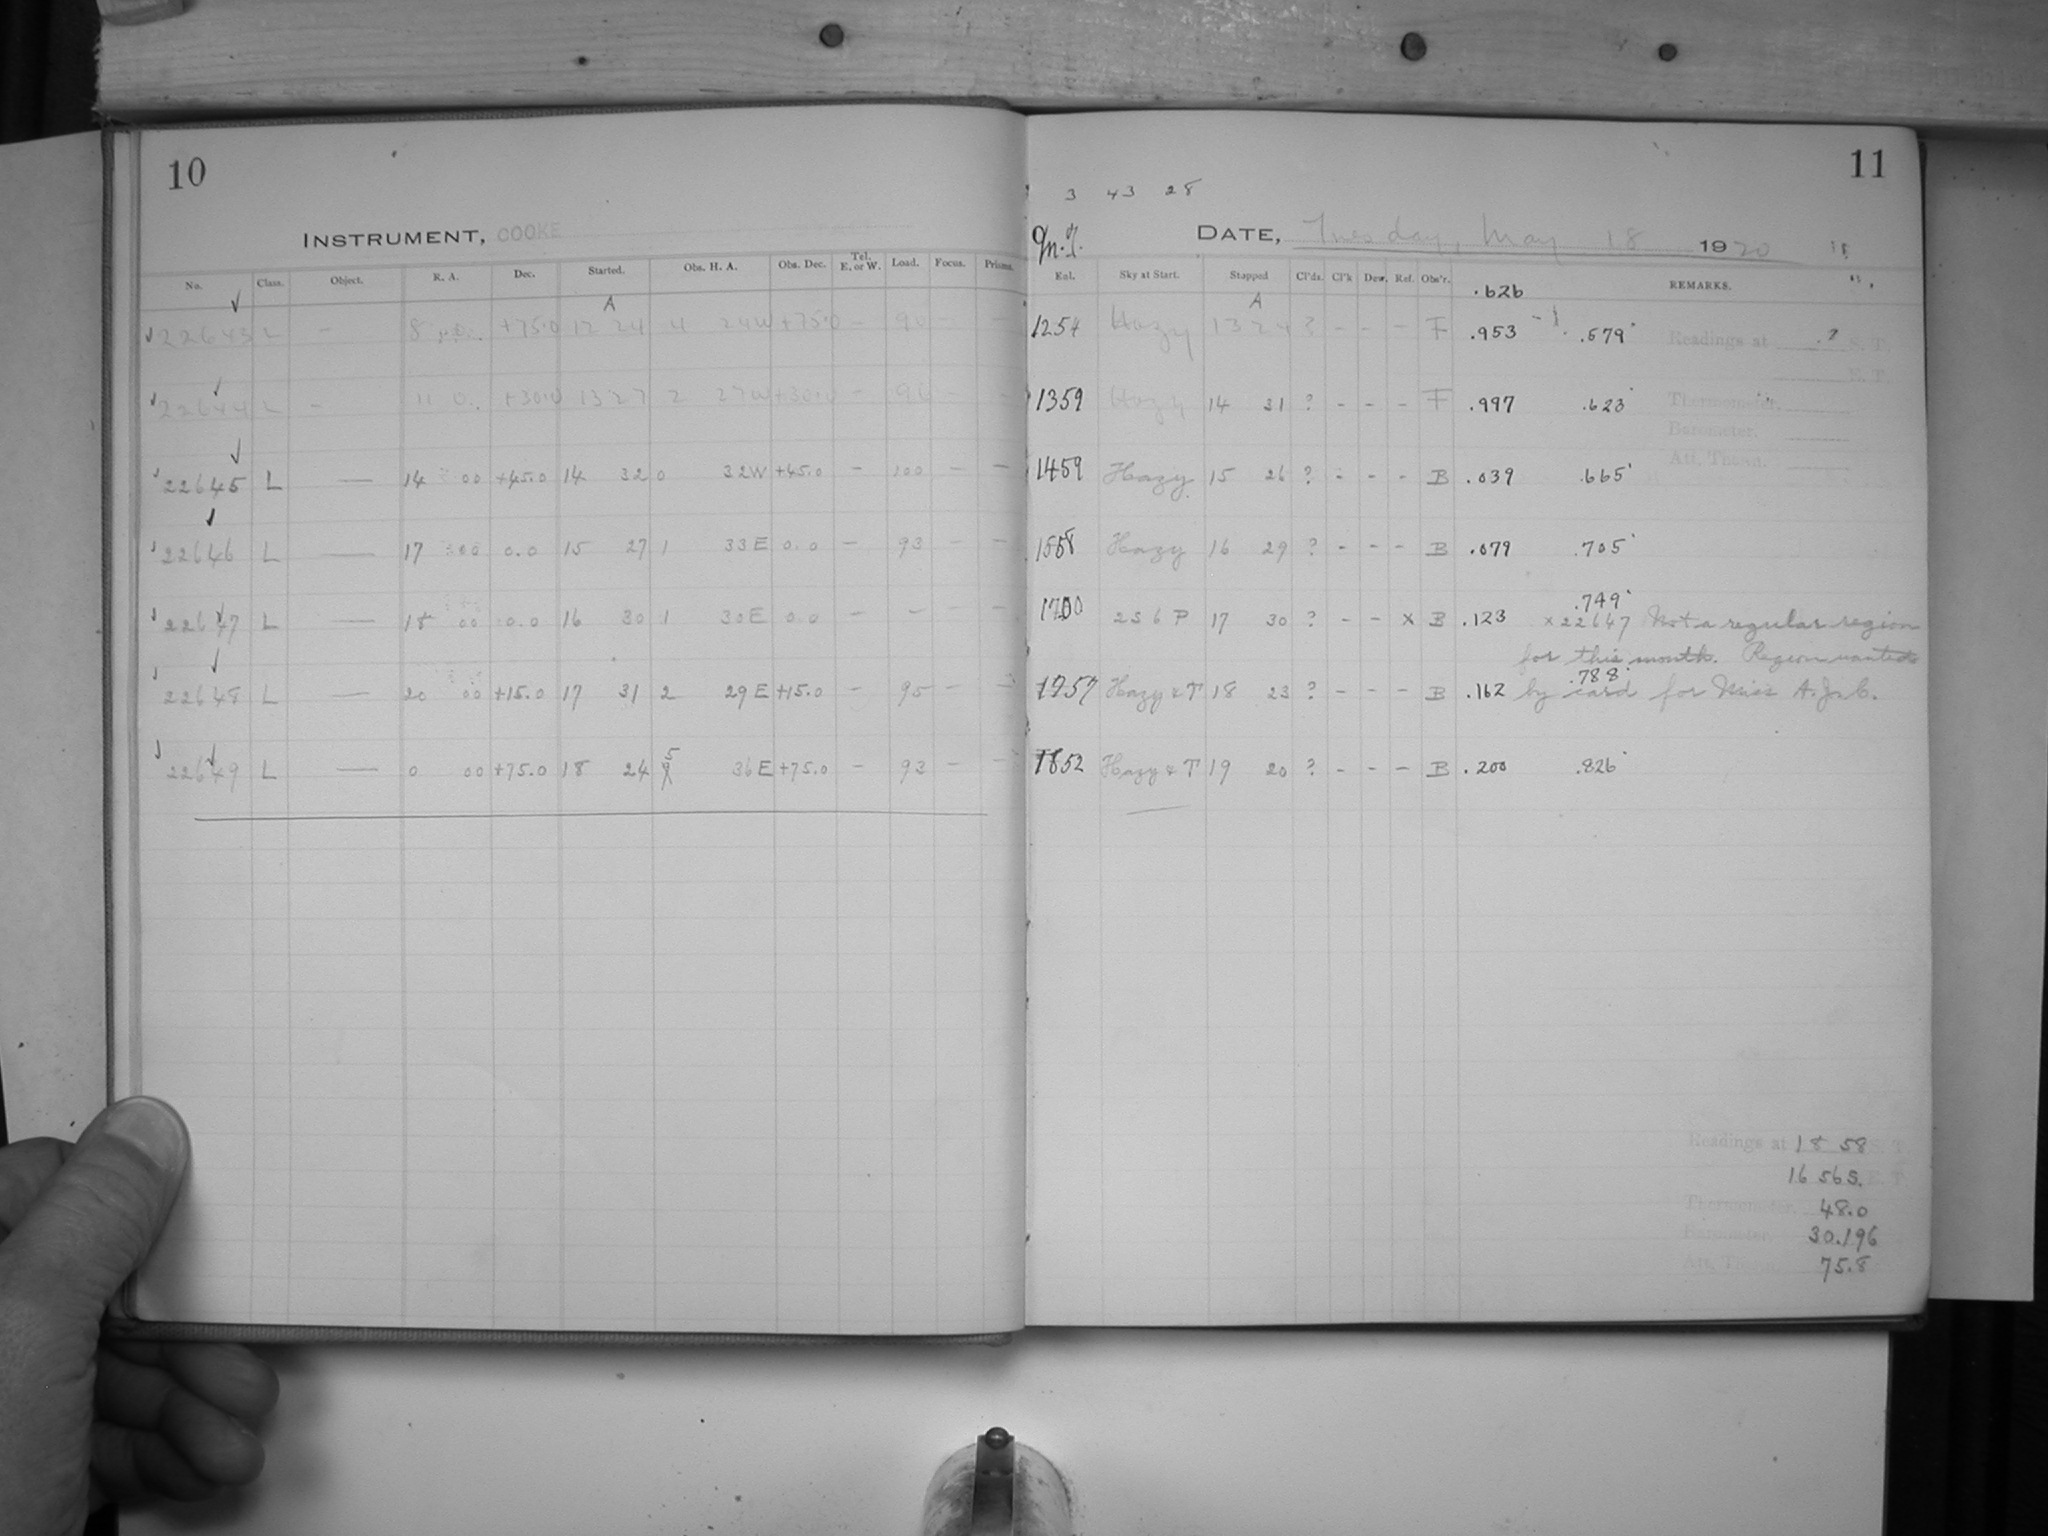 10
INSTRUMENT, COOKE
No. Class. Object. R. A. Dec. Started. Obs. H. A. Obs. Dec. Tel. E. or W. Load. Focus. Prisms.
A
22643 L - 8 +75.0 12 24 4 24W +75.0 - 90 - -
22644 L - 11 0 +30.0 13 27 2 27W +30.0 - 90 - -
22645 L — 14 00 +45.0 14 32 0 32W +45.0 - 100 - -
22646 L — 17 00 0.0 15 27 1 33E 0.0 - 93 - -
22647 L — 18 00 0.0 16 30 1 30E 0.0 - - - -
22648 L — 20 00 +15.0 17 31 2 29E +15.0 - 95 - -
5
22649 L — 0 00 +75.0 18 24 36E +75.0 - 93 - -
11
3 43 28
DATE, Tuesday, May 18 1920
Eol. Sky at Start. Stopped Cl'ds. Cl'k Dew. Ref. Obs'r. REMARKS.
A .626
1254 Hazy 13 24 ? - - - F .953 .579
1359 Hazy 14 31 ? - - - F .997 .623
1459 Hazy 15 26 ? - - - B .039 .665
1558 Hazy 16 29 ? - - - B .079 .705
.749
1700 2S6P 17 30 ? - - x B .123 x22647 Not a regular region
for this month. Region wanted
.788
1757 Hazy & T 18 23 ? - - - B .162 by card for Miss A.J.C.
1852 Hazy & T 19 20 ? - - - B .200 .826
Readings at S. T.
E. T.
Thermometer.
Barometer.
Att. Therm.
Readings at 18 58 S. T.
16 56S. E. T.
Thermometer. 48.0
Barometer. 30.196
Att. Therm. 75.8